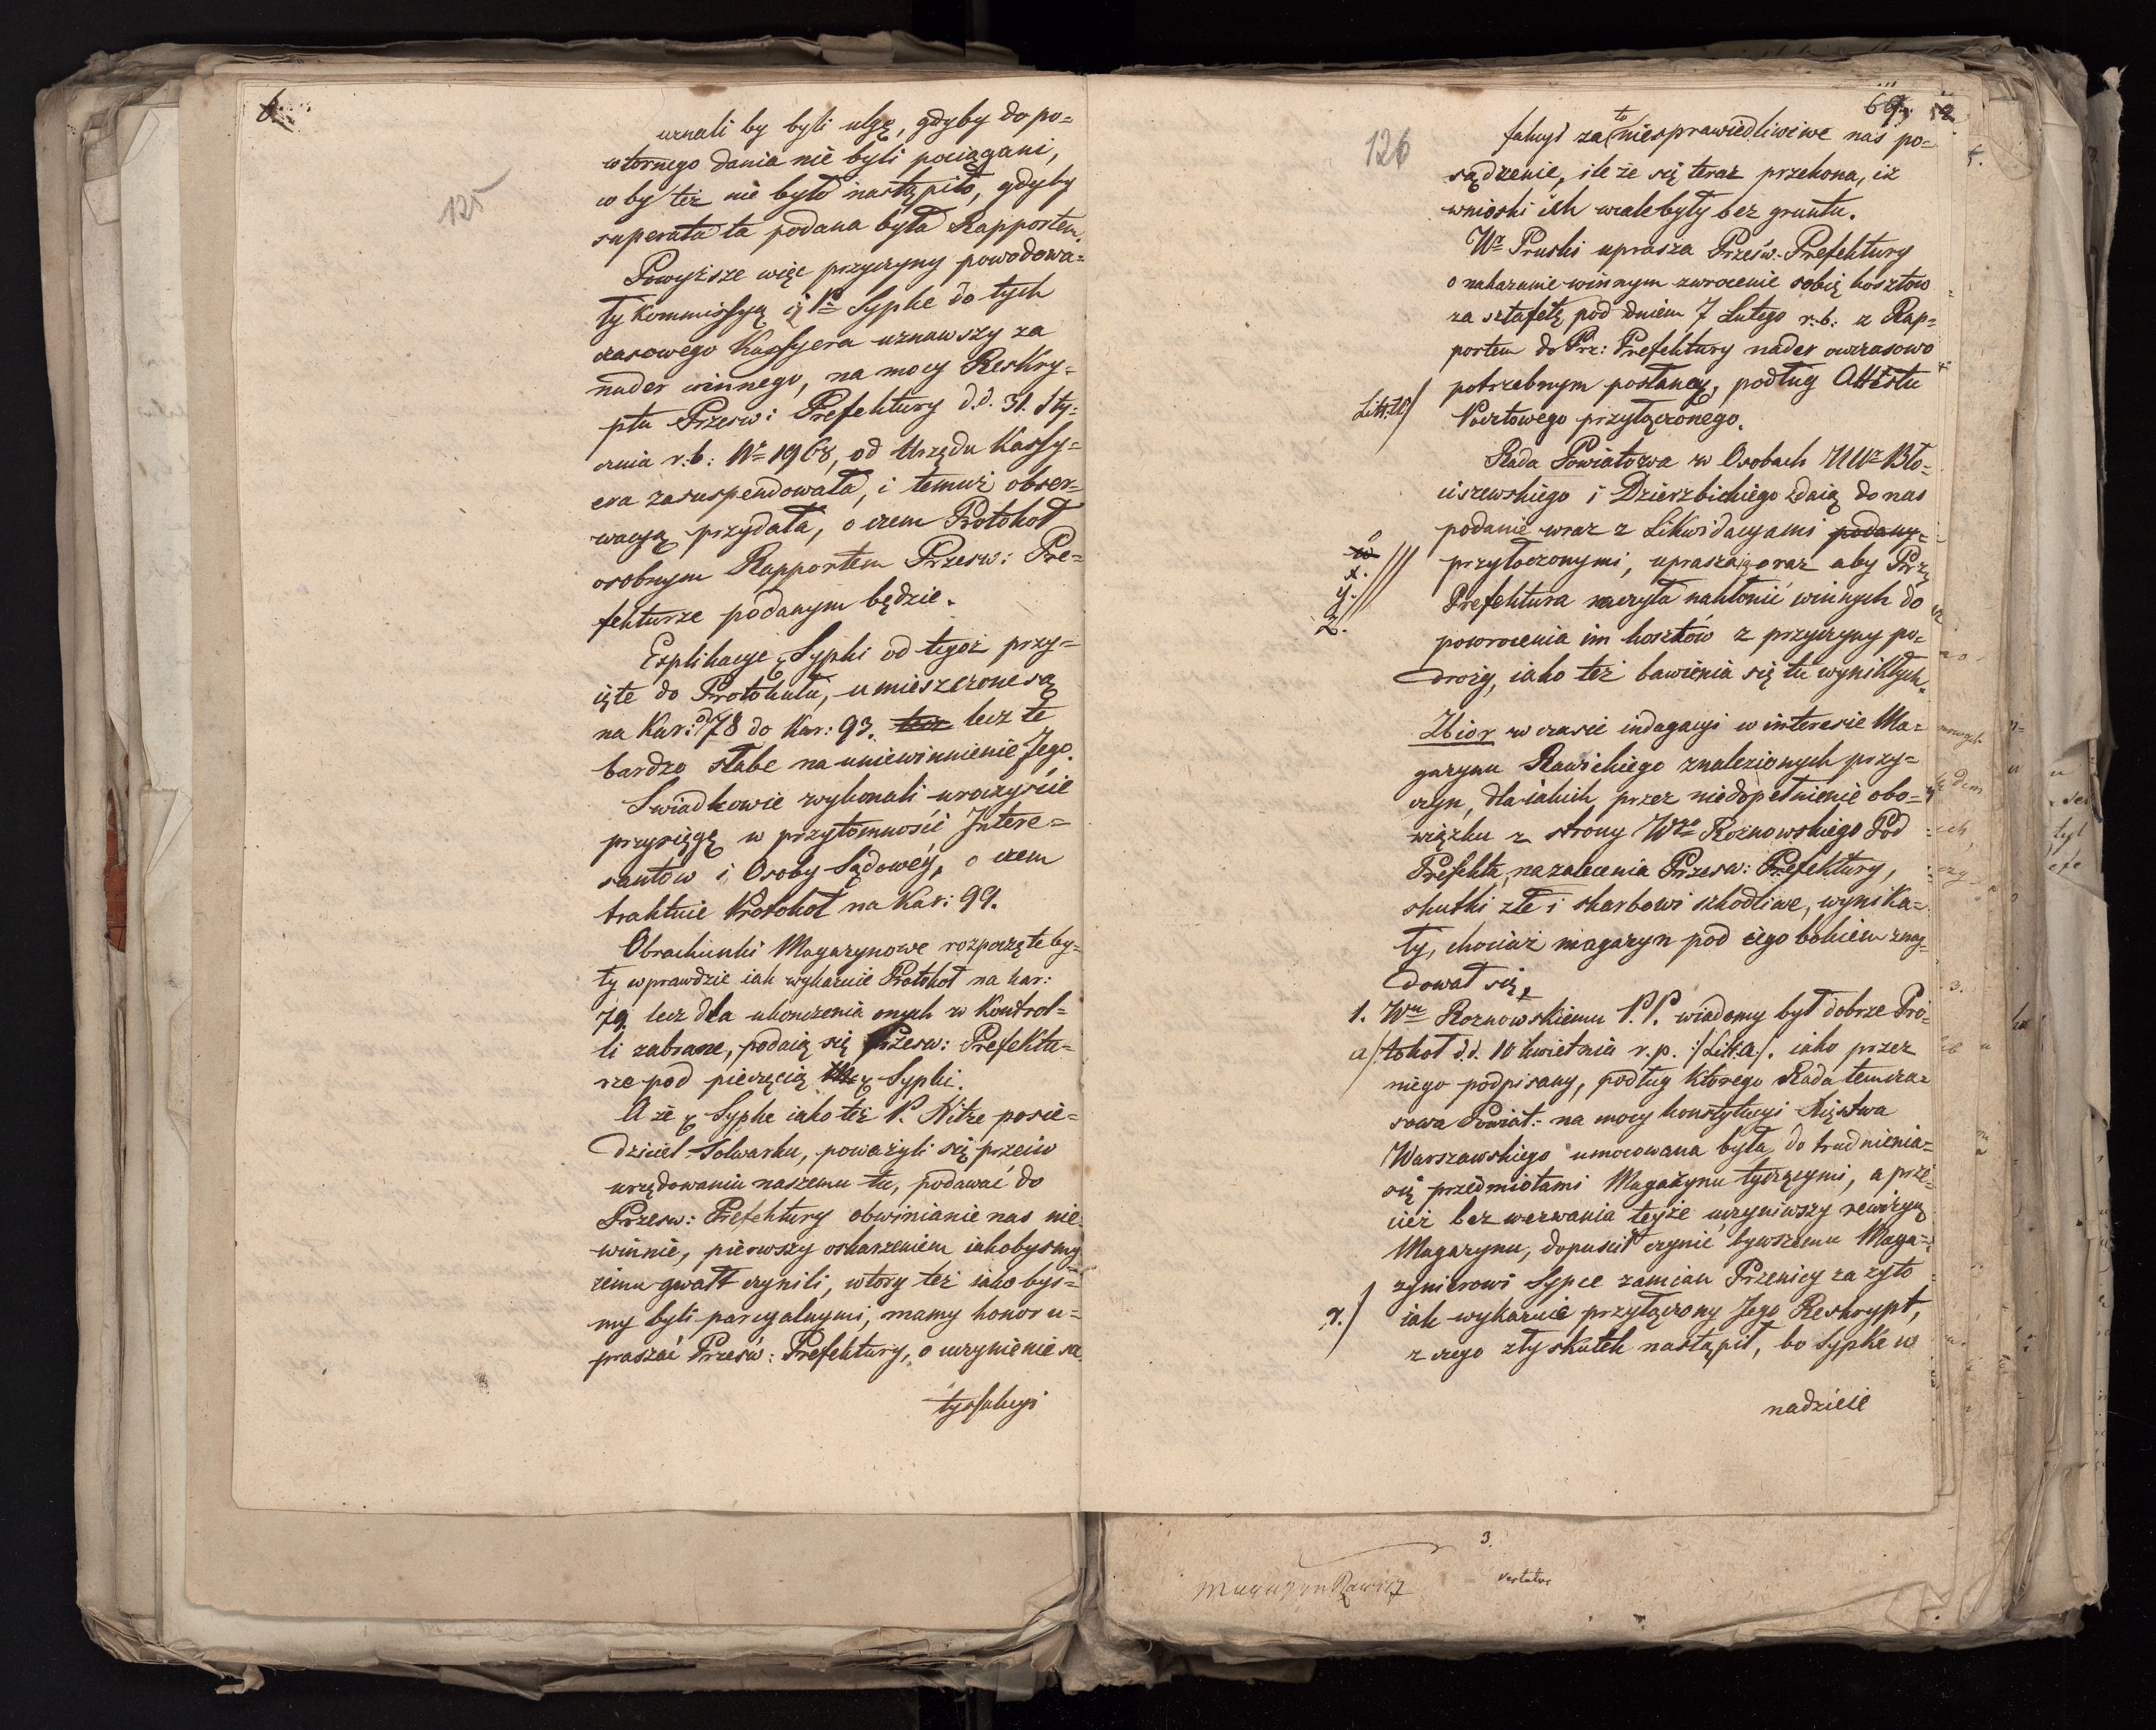 125
uznali by byli ulgę, gdyby do po=
wtornego dania nie byli pociągani,
co by też nie było nastąpiło, gdyby
superata ta podana była Rapportem.
Powyższe więc przyczyny powodowa=
ły Kommissyą iż Pn Sypke do tych
czasowego Kassyera uznawszy za
nader winnego, na mocy Reskry=
ptu Przesw: Prefektury d.d. 31. Sty=
cznia r:b: No 1968, od Urzędu Kassy=
era zasuspendowała, i temuż obser=
wacyą przydała, o czem Protokoł
osobnym Rapportem Przesw: Pre=
fekturze podanym będzie.
Explikacye Sypki od tegoż przy=
ięte do Protokułu, umieszczone są
na Kar: od 78 do Kar: 93. lecz te
bardzo słabe na uniewinnienie Jego.
Swiadkowie wykonali uroczyście
przysięgę w przytomności Intere=
santow i Osoby Sądowéy, o czem
traktuie Protokoł na Kar: 99.
Obrachunki Magazynowe rozpoczęte by=
ły wprawdzie iak wykazuie Protokoł na kar:
79. lecz dla ukonczenia onych w Kontrol=
li zabrane, podaią się Przesw: Prefektu=
rze pod pieczęcią Sypki.
A że Sypke iako też P. Nitze posie=
dziciel Folwarku, poważyli się przeciw
urzędowaniu naszemu tu, podawać do
Przesw: Prefektury obwinianie nas nie=
winnie, pierwszy oskarzeniem iakobysmy
iemu gwałt czynili, wtory też iakobys=
my byli parcyalnymi, mamy honor u=
praszać Przesw: Prefektury, o uczynienie sa=
tysfakcyi
126
69.
fakcyi za to niesprawiedliwe nas po=
sądzenie, ile że się teraz przekona, iż
wnioski ich wcale były bez gruntu.
Wr Pruski uprasza Przesw. Prefektury
o nakazanie winnym zwrocenie sobie kosztow
za sztafetę pod dniem 7 Lutego r:b: z Rap=
portem do Prz: Prefektury nader owczasowo
potrzebnym posłaney, podług Attestu
Pocztowego przyłączonego.
Rada Powiatowa w Osobach UWr Bło=
ciszewskiego i Dzierzbickiego zdaią do nas
podanie wraz z Likwidacyami podany=
x.
y.
z.
przyłączonymi, upraszaią oraz aby Prz:
Prefektura raczyła nakłonić winnych do
powrocenia im kosztów z przyczyny po=
droży, iako też bawienia się tu wynikłych.
Zbior w czasie indagacyi w interesie Ma=
gazynu Rawickiego znalezionych przy=
czyn, dla iakich przez niedopełnienie obo=
wiązku z strony Wgo Roznowskiego Pod
Prefekta, na zalecenia Przesw: Prefektury,
skutki złe i skarbowi szkodliwe, wynika=
ły, chociaż magazyn pod iego bokiem znay=
dował się.
1. Wmu Roznowskiemu P.P. wiadomy był dobrze Pro=
a/ tokoł d.d. 10 kwietnia r.p. :/Litt.a/. iako przez
niego podpisany, podług ktorego Rada temcza=
sowa Powiat:- na mocy konstytucyi Xięstwa
Warszawskiego umocowana była, do trudnienia=
się przedmiotami Magazynu tyczącymi, a prze=
cież bez wezwania teyże uczyniwszy rewizyą
Magazynu, dopuścił czynić bywszemu Maga=
zynierowi Sypce zamian Przenicy za żyto
iak wykazuie przyłączony Jego Reskrypt,
z czego zły skutek nastąpił, bo Sypke w
nadzieie
3.
Magazyn Rawicz